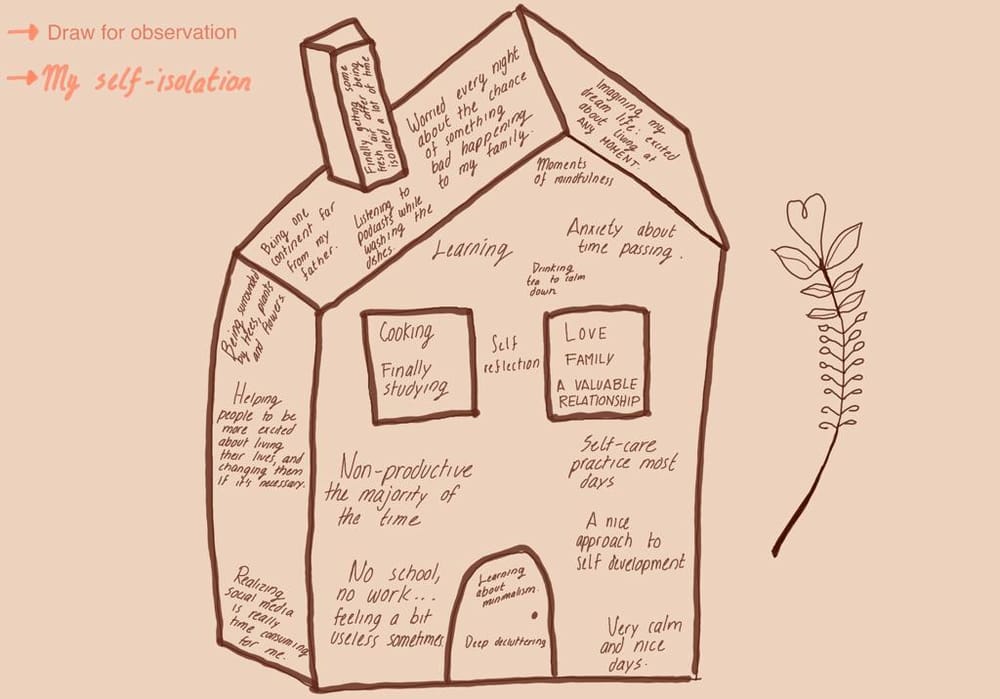 → Draw for observation
→ My self-isolation
Finally getting some
fresh air after being
isolated a lot of time
Worried every night
about the chance
of something
bad happening
to my family.
Imagining my
dream life: excited
about living at
ANY MOMENT.
Being one
continent far
from my
father.
Listening to
podcasts while
washing the
dishes.
Moments
of mindfulness
Learning
Anxiety about
time passing.
Drinking
tea to calm
down
Being surrounded
by trees, plants
and flowers.
Cooking
Finally
studying
Self
reflection
LOVE
FAMILY
A VALUABLE
RELATIONSHIP
Helping
people to be
more excited
about living
their lives, and
changing them
if it's necessary.
Non-productive
the majority of
the time
Self-care
practice most
days
A nice
approach to
self development
Realizing
social media
is really
time consuming
for me.
No school,
no work...
feeling a bit
useless sometimes
Learning
about
minimalism.
Deep decluttering
Very calm
and nice
days.